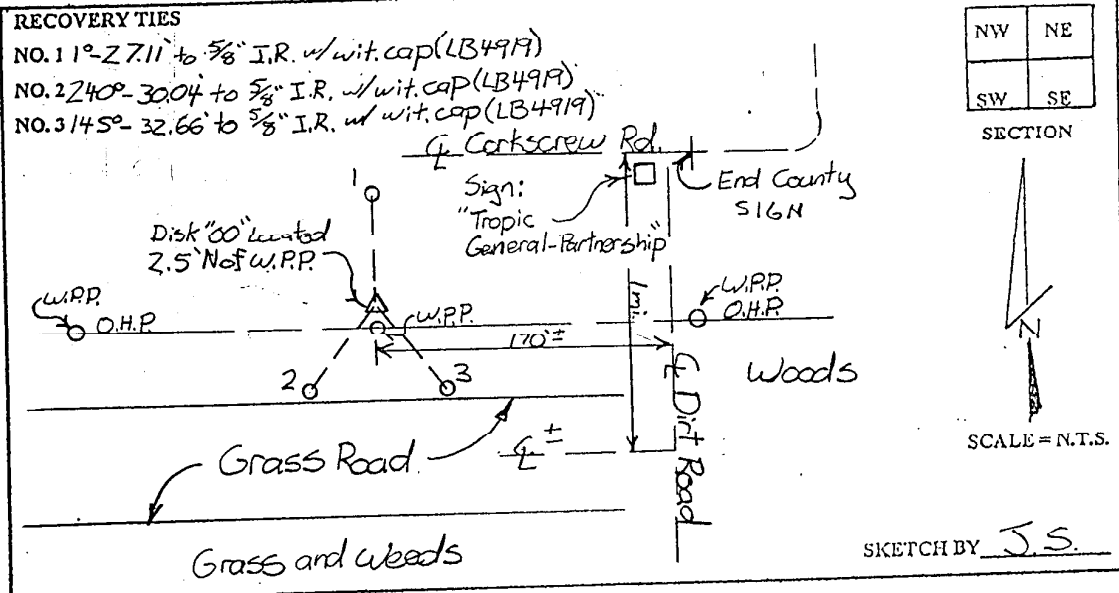 RECOVERY TIES
NO. 1 1°-27.11' to 5/8" I.R. w/ wit. cap (LB4919)
NO. 2 240°-30.04' to 5/8" I.R. w/ wit. cap (LB4919)
NO. 3 145°-32.66' to 5/8" I.R. w/ wit. cap (LB4919)
NW NE
SW SE
SECTION
℄ Corkscrew Rd.
Sign:
"Tropic
General-Partnership"
End County
SIGN
1
Disk "00" Located
2.5' N of W.P.P.
W.P.P.
O.H.P.
W.P.P.
W.P.P.
O.H.P.
170'±
1mi.
2
3
Woods
N
℄ Dirt Road
Grass Road
℄ ±
SCALE = N.T.S.
Grass and Weeds
SKETCH BY J.S.